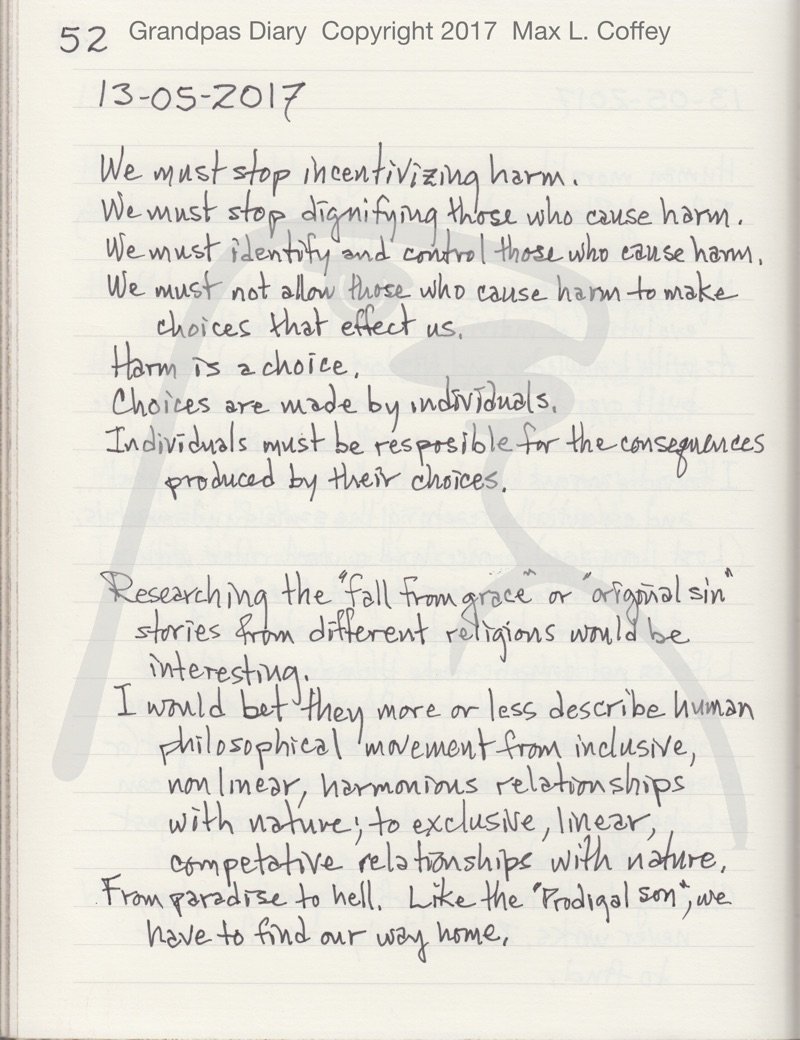 52 Grandpas Diary Copyright 2017 Max L. Coffey
13-05-2017
We must stop incentivizing harm.
We must stop dignifying those who cause harm.
We must identify and control those who cause harm.
We must not allow those who cause harm to make
choices that effect us.
Harm is a choice.
Choices are made by individuals.
Individuals must be resposible for the consequences
produced by their choices.
Researching the "fall from grace" or "origonal sin"
stories from different religions would be
interesting.
I would bet they more or less describe human
philosophical movement from inclusive,
nonlinear, harmonious relationships
with nature; to exclusive, linear,
competative relationships with nature.
From paradise to hell. Like the "Prodigal son", we
have to find our way home.